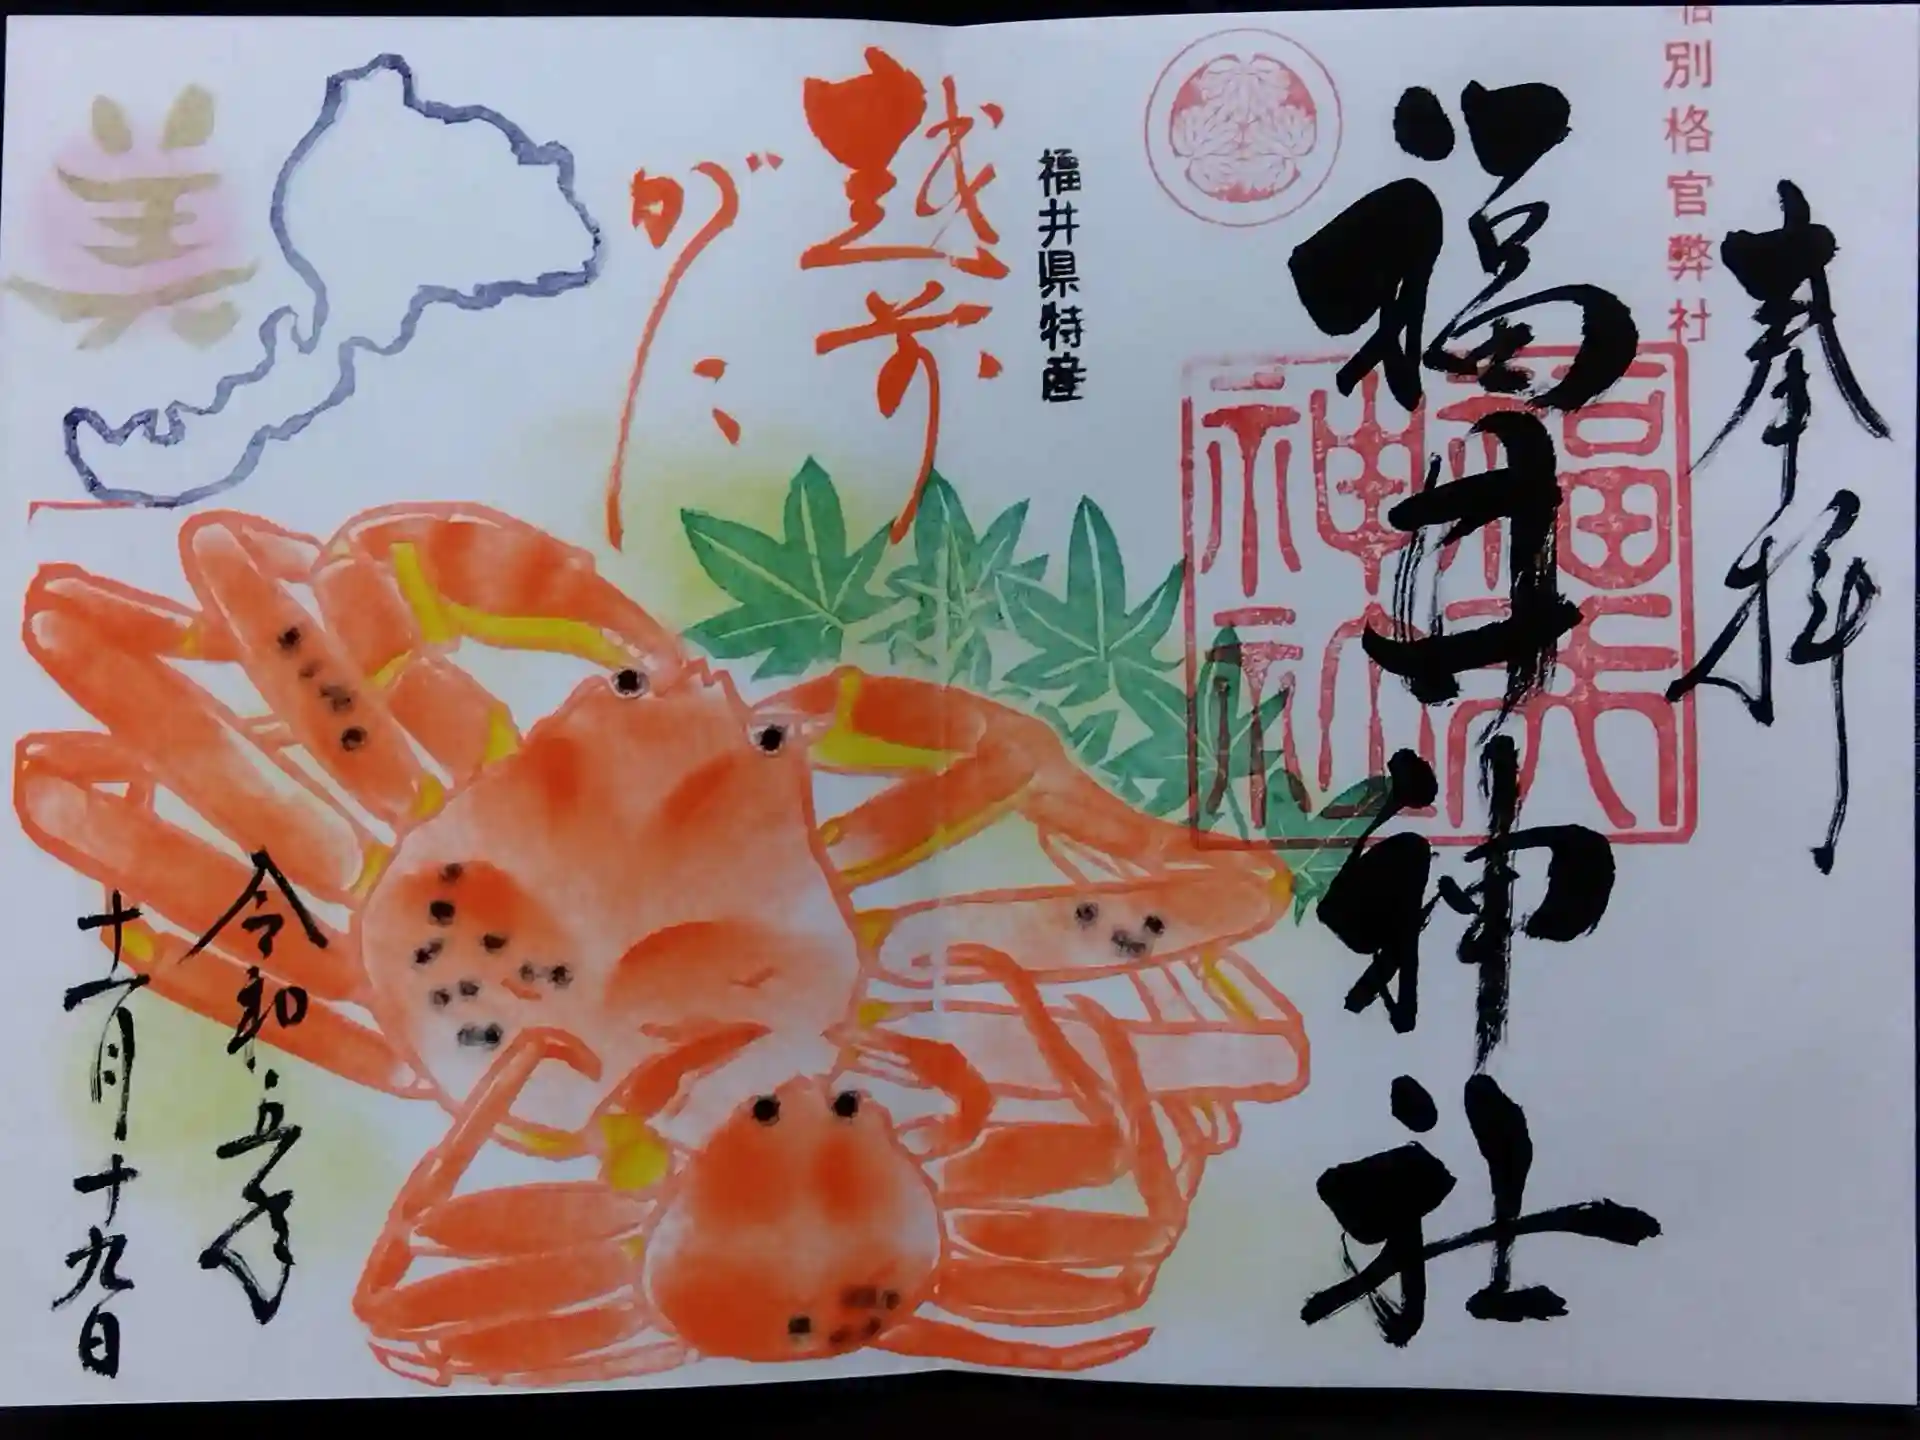 奉拝
別格官弊社
福井神社
福井神社
福井県特産
越前
がに
美
令和五年
十一月十九日